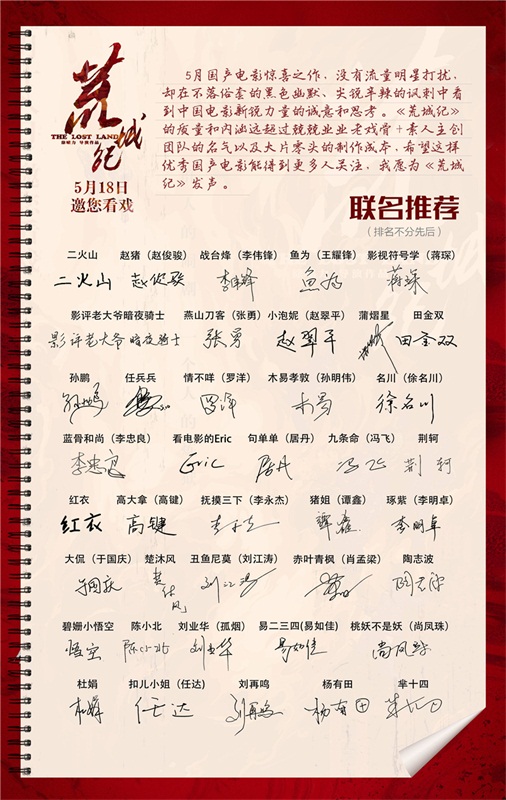 荒城纪
THE LOST LAND
徐啸力 导演作品
5月18日
邀您看戏
5月国产电影惊喜之作，没有流量明星打扰，
却在不落俗套的黑色幽默、尖锐辛辣的讽刺中看
到中国电影新锐力量的诚意和思考。《荒城纪》
的质量和内涵远超过兢兢业业老戏骨+素人主创
团队的名气以及大片零头的制作成本，希望这样
优秀国产电影能得到更多人关注，我愿为《荒城
纪》发声。
联名推荐
（排名不分先后）
二火山 赵猪（赵俊骏） 战台烽（李伟锋） 鱼为（王耀锋） 影视符号学（蒋琛）
二火山 赵俊骏 李伟锋 魚为 蒋琛
影评老大爷暗夜骑士 燕山刀客（张勇） 小泡妮（赵翠平） 蒲熠星 田金双
影评老大爷暗夜骑士 张勇 赵翠平 田金双
孙鹏 任兵兵 情不咩（罗洋） 木易孝敦（孙明伟） 名川（佟名川）
孙鹏 罗洋 木易 徐名川
蓝骨和尚（李忠良） 看电影的Eric 句单单（居丹） 九条命（冯飞） 荆轲
李忠良 Eric 居丹 冯飞 荆轲
红衣 高大拿（高键） 抚摸三下（李永杰） 猪姐（谭鑫） 琢紫（李明卓）
红衣 高键 谭鑫 李明卓
大侃（于国庆） 楚沐风 丑鱼尼莫（刘江涛） 赤叶青枫（肖孟梁） 陶志波
于国庆 楚沐风 刘江涛 陶志波
碧姗小悟空 陈小北 刘业华（孤烟） 易二三四(易如佳) 桃妖不是妖（尚凤珠）
悟空 陈小北 刘业华 易如佳 尚凤珠
杜娟 扣儿小姐（任达） 刘再鸣 杨有田 芈十四
杜娟 任达 刘再鸣 杨有田 芈十四